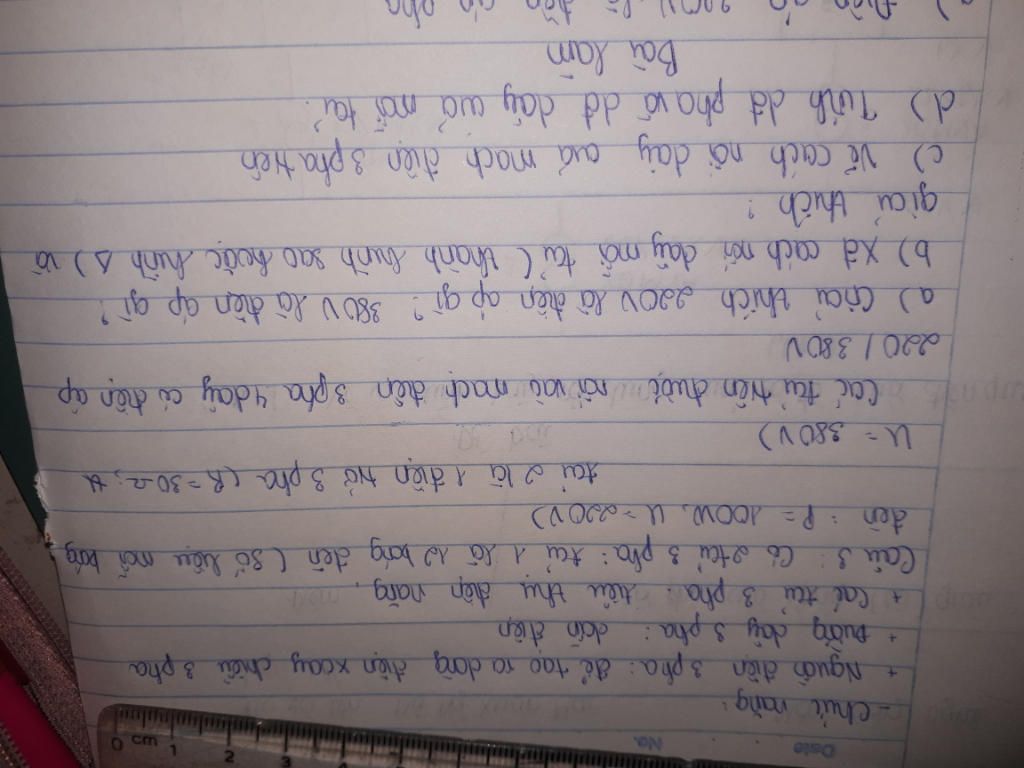 Date No.
- Chức năng:
+ Nguồn điện 3 pha: để tạo ra dòng điện xoay chiều 3 pha
+ Đường dây 3 pha: dẫn điện
+ Các tải 3 pha: tiêu thụ điện năng.
Câu 3: Có 2 tải 3 pha: tải 1 là 12 bóng đèn (số liệu mỗi bóng
đèn: P = 100W, U = 220V)
tải 2 là 1 điện trở 3 pha (R = 30Ω;
U = 380V)
Các tải trên được nối vào mạch điện 3 pha 4 dây có điện áp
220 / 380V
a) Giải thích 220V là điện áp gì? 380V là điện áp gì?
b) Xđ cách nối dây mỗi tải (thành hình sao hoặc hình Δ) và
giải thích?
c) Vẽ cách nối dây của mạch điện 3 pha trên
d) Tính dđ pha và dđ dây của mỗi tải.
Bài làm
a) Điện áp 220V là điện áp pha